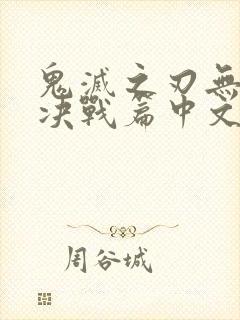 鬼滅之刃無
决戰篇中文
周谷城